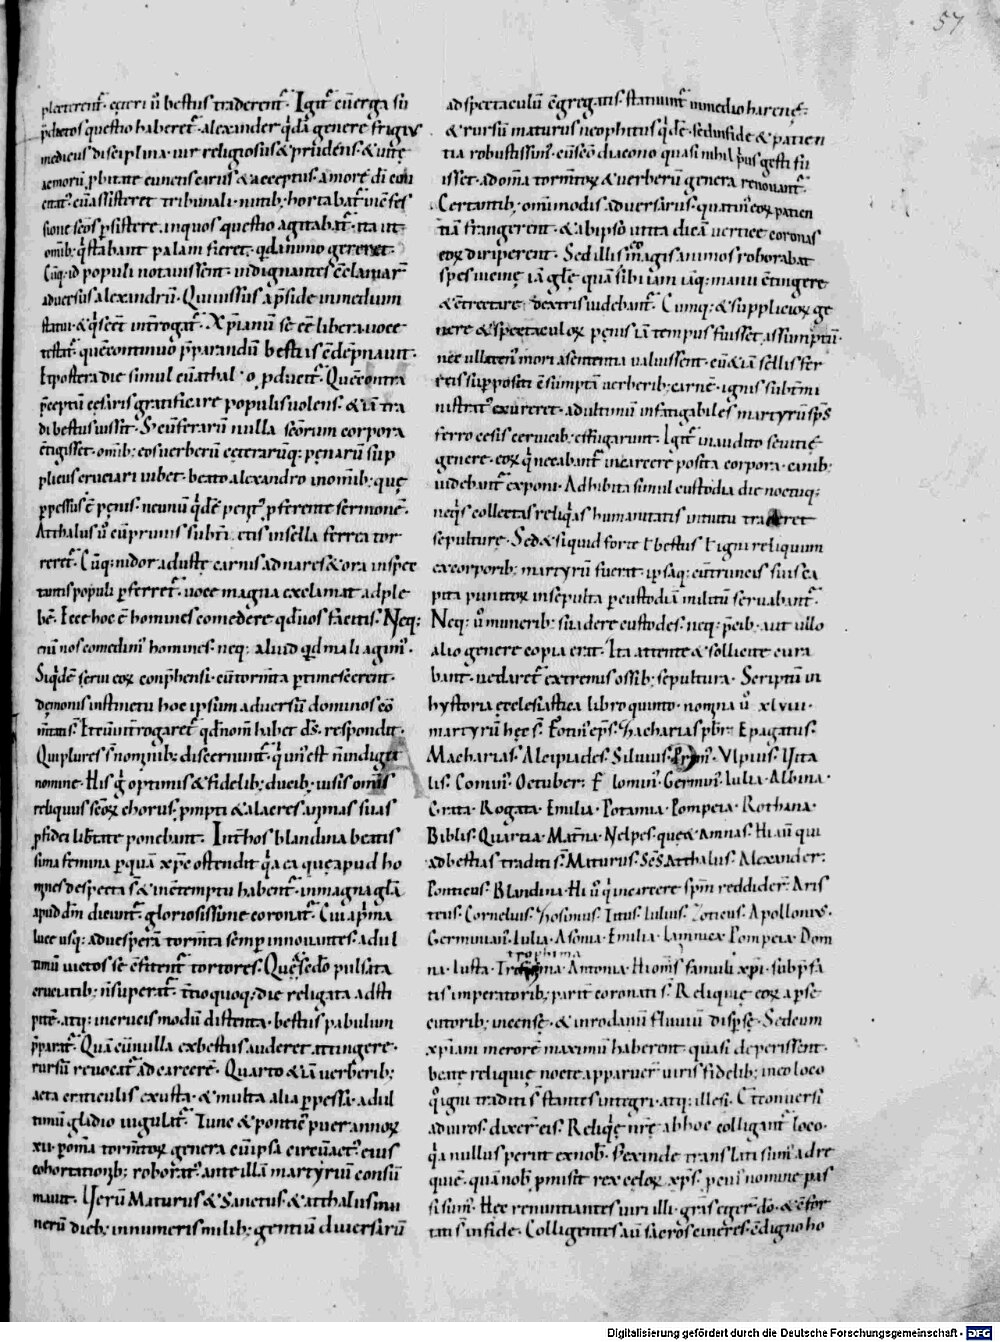 57
plecterent᷒. ceteri u᷒ bestiis traderent᷒. Igit᷒ cū erga su
p̄dictos questio haberet᷒. alexander qͥdā genere frigius
medicus disciplina. uir religiosus & prudens. & uitę
ac morū ꝓbitate cunctis carus & acceptus. amore dī
citat᷒. cū assisteret tribunali. nutib; hortabat᷒ in cōfes
sione scōs ꝑsistere. in quos questio agitabat᷒. ita ut
omīb; qͥ stabant palam fieret. qd animo gereret.
Cūq; id populi notauissent. indignantes cōclamar̄
aduersus alexandrū. Qui iussus a p̄side in medium
statui. & qͥs eēt int̄rogat᷒. Xpianū se eē libera uoce
testat᷒. quē continuo p̄parandū bestiis cōdēpnauit.
Et postera die simul cū athalo ꝓducit᷒. Quē contra
p̄ceptū cesaris gratificare populis uolens. & iā tra
di bestiis iussit. S; cū ferarū nulla scōrum corpora
cōtigisset. omīb; eos uerberū ceterarūq; penarū sup
pliciis cruciari iubet. beato alexandro in omīb; quę
ꝑpessus ē penis. ne unū qͥdē penit᷒ ꝓferente sermonē.
Atthalus u᷒ cū primis subtractis in sella ferrea tor
reret᷒. Cūq; nidor adustę carnis ad nares & ora inspec
tantis populi ꝑferret᷒. uoce magna exclamat ad ple
bē. Ecce hoc ē homines comedere qd uos facitis. Neq;
enī nos comedim᷒ homines. neq; aliud qd mali agim᷒.
Siqͥdē serui eoꝝ conp̄hensi. cū torm̄ta ꝑtimescerent.
dęmonis instinctu hoc ipsum aduersū dominos cō
mtati s̄. Et cū int̄rogaret᷒ qd nom̄ habet d̄s. respondit.
Qui plures s̄ nominib; discernunt᷒. qͥ un᷒ est n̄ indiget
nomine. His gͥ optimis & fidelib; ducib; uisis omīs
reliquus scōꝝ chorus. prompti & alacres animas suas
ꝓ fidei libertate ponebant. Int̄ hos blandina beatis
sima femina ꝑ quā xp̄c ostendit qͥa ea quę apud ho
mines despecta s̄ & incontempta habent᷒. in magna gl̄a
apud dm̄ dicunt᷒. gloriosissime coronat᷒. Cui a prima
luce usq; ad uesperā torm̄ta semp̄ innouantes. ad ul
timū uictos se cōfitent᷒ tortores. Quę secdo pulsata
cruciatib; n̄ superat᷒. t̄tio quoq; die religata ad sti
pitē. atq; in crucis modū distenta. bestiis pabulum
p̄parat᷒. Quā cū nulla ex bestiis auderet attingere.
rursū reuocat᷒ ad carcerē. Quarto & iā uerberib;
acta. craticulis exusta. & multa alia ꝑpessa. ad ul
timū gladio iugulat᷒. Tunc & ponticus puer annoꝝ
xv. ꝑ omīa torm̄toꝝ genera cū ipsa circūact᷒. eius
cohortationib; roborat᷒. ante illā martyriū consū
mauit. Uerū Maturus & Sanctus & atthalus mu
nerū dieb; innumeris milib; gentiū diuersarū
ad spectaculū cōgregatis. statuunt᷒ in medio harenę.
& rursū maturus neophitus qͥdē. sed in fide & patien
tia robustissim᷒. cū scō diacono quasi nihil p̄us gesti fu
isset. ad omīa torm̄toꝝ & uerberū genera renouant᷒.
Certantib; omīmodis aduersariis. quatin᷒ eoꝝ patien
tiā frangerent. & ab ipso ut ita dicā uertice coronas
eoꝝ diriperent. Sed illis magis animos roborabat
spes uicinę iā glę. quā sibi iam iāq; manu cōtingere
& cōtrectare dextris uidebant᷒. Cumq; & supplicioꝝ ge
nere & spectaculoꝝ penis iā tempus fuisset assumptū.
nec ullaten᷒ mori a sententia ualuissent. cū & iā sellis fer
reis suppositi cōsumptā uerberib; carnē. ignis subt̄ mi
nistrat᷒ exureret. ad ultimū infatigabiles martyrū sp̄s
ferro cesis ceruicib; effugarunt. Igit᷒ inaudito seuitię
genere. eoꝝ qͥ necabant᷒ in carcere posita corpora. canib;
uidebant᷒ exponi. Adhibita simul custodia die noctuq;
ne qͥs collectas reliqͥas humanitatis intuitu traderet
sepulture. Sed & si quid forte ł bestiis ł igni reliquum
ex corporib; martyrū fuerat. ipsaq; cū truncis suis ca
pita punitoꝝ insepulta ꝑ custodiā militū seruabant᷒.
Neq; u᷒ munerib; suadere custodes. neq; p̄cib; aut ullo
alio genere copia erat. Ita attente & sollicite cura
bant. ne daret᷒ extremis ossib; sepultura. Scriptū in
hystoria ecclesiastica libro quinto. nomina u᷒ xlviii.
martyrū hec s̄. Fotin᷒ ep̄s. Zacharias pbr̄. Epagatus.
Macharias. Alcipiades. Siluius. Prim᷒. Vlpius. Uita
lis. Comin᷒. October. F lomin᷒. Germin᷒. Iulia. Albina.
Grata. Rogata. Emilia. Potamia. Pompeia. Rothana.
Biblis. Quartia. Mat̄na. Nelpes. que & Amnas. Hi aū qui
ad bestias traditi s̄. Miturus. Scs̄. Atthalus. Alexander.
Ponticus. Blandina. Hi u᷒ qͥ in carcere spm̄ reddider̄. Aris
teus. Cornelius. Zosimus. Titus. Iulius. Zoticus. Apollonius.
Geminian᷒. Iulia. Asonia. Emilia. Iamnica. Pompeia. Dom
trophima
na. Iusta. Trofima. Antonia. Hi omīs famuli xp̄i. sub p̄fa
tis imperatorib; parit̄ coronati s̄. Reliquię eoꝝ a pse
cutorib; incensę. & in rodanū fluuiū dispsę. Sed cum
xp̄iani merorē maximū haberent. quasi deperissent
beatę reliquię. nocte apparuer̄ uiris fidelib; in eo loco
qͦ igni traditi s̄. stantes integri. atq; illesi. Et conuersi
ad uiros. dixer̄ eis. Reliqͥę nr̄ę ab hoc colligant᷒ loco.
qͥa nullus periit ex nob. S; exinde translati sum᷒ ad re
quiē. quā nob p̄misit rex celoꝝ xp̄s. pcui᷒ nomine pas
si sum᷒. Hęc renuntiantes uiri illi. gr̄as eger̄ do. & cōfor
tati s̄ in fide. Colligentes aū sacros cineres. cōdigno ho
Digitalisierung gefördert durch die Deutsche Forschungsgemeinschaft - DFG